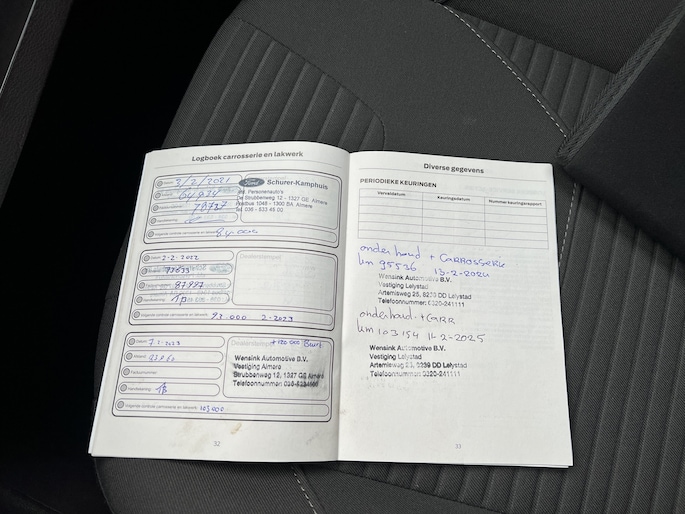 Logboek carrosserie en lakwerk
Datum 3/2/2021
64934
79727
Ford Schurer-Kamphuis
Personenauto's
De Strubbenweg 12 - 1327 GE Almere
Postbus 1048 - 1300 BA Almere
Tel 036 - 533 45 00
84.000
Datum 2-2-2022
73633
87997
Volgende controle carrosserie en lakwerk: 93.000 2-2023
Datum 7-2-2023
+ 120 000
Wensink Automotive B.V.
Vestiging Almere
Strubbenweg 12, 1327 GE Almere
Telefoonnummer: 036-5334500
Volgende controle carrosserie en lakwerk: 103000
32
Diverse gegevens
PERIODIEKE KEURINGEN
Vervaldatum Keuringsdatum Nummer keuringsrapport
onderhoud + CARROSSERIE
km 95536 13-2-2024
Wensink Automotive B.V.
Vestiging Lelystad
Artemisweg 25, 8239 DD Lelystad
Telefoonnummer: 0320-241111
onderhoud + CARR
km 103154 11-2-2025
Wensink Automotive B.V.
Vestiging Lelystad
Artemisweg 25, 8239 DD Lelystad
Telefoonnummer: 0320-241111
33